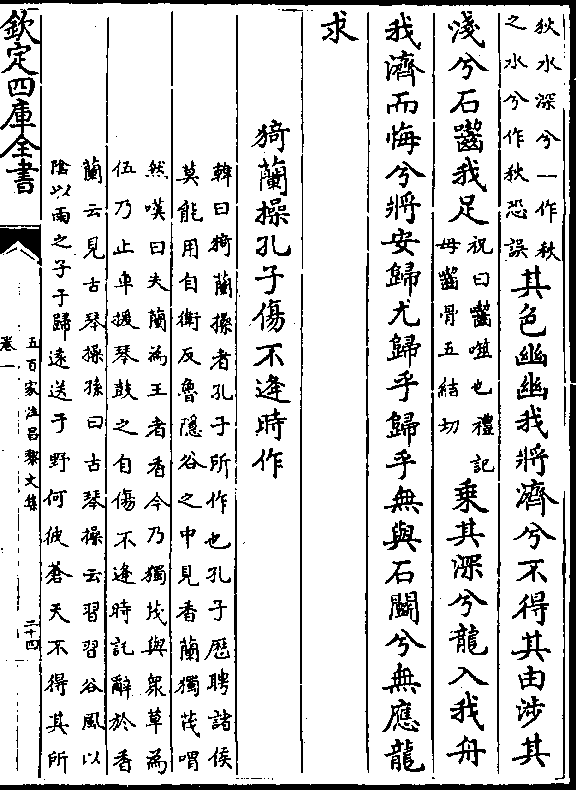 狄水深兮一作秋
之水兮作秋恐誤
其色幽幽我將濟兮不得其由涉其
淺兮石齧我足
祝曰齧噬也禮記
毋齧骨五結切
乗其深兮龍入我舟
我濟而悔兮將安歸尤歸乎歸乎無與石鬬兮無應龍
求
猗蘭操孔子傷不逢時作
韓曰猗蘭操者孔子所作也孔子歴聘諸侯
莫能用自衛反魯隠谷之中見香蘭獨茂喟
然嘆曰夫蘭為王者香今乃獨茂與衆草為
伍乃止車援琴鼓之自傷不逢時託辭於香
蘭云見古琴操孫曰古琴操云習習谷風以
隂以雨之子于歸逺送于野何彼蒼天不得其所
欽定四庫全書
五百家注昌黎文集
卷一
二十四